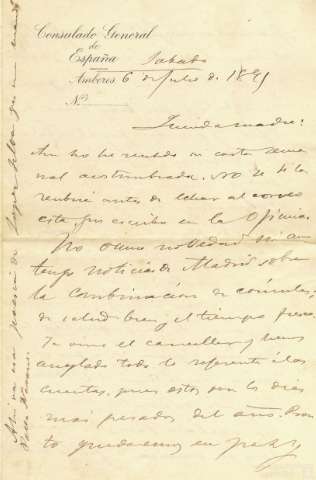 Consulado General
de
España
Sabado
Amberes 6 de Julio de 1895
Nº
Querida madre:
Aun no he recibido su carta sema
nal acostumbrada. No se si la
recibiré antes de echar al correo
esta que escribo en la Oficina.
No ocurre novedad. Ni aun
tengo noticias de Madrid sobre
la Combinación de cónsules,
de salud bien y el tiempo fresco.
Ya vino el canciller y hemos
arreglado todo lo referente á las
cuentas, pues estos son los dias
mas pesados del año. Pron
to quedaremos en paz y
Ahi va una poesia de